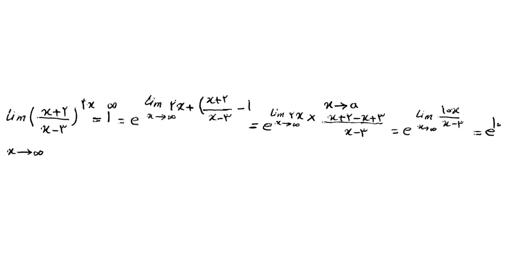 lim (x+۲/x-۳)^۲x = 1^∞ = e^lim x→∞ ۲x+(x+۲/x-۳ -1 = e^lim x→∞ ۲x × x+۲-x+۳/x-۳ x→a = e^lim x→∞ ۱۰x/x-۳ = e^۱۰
x→∞